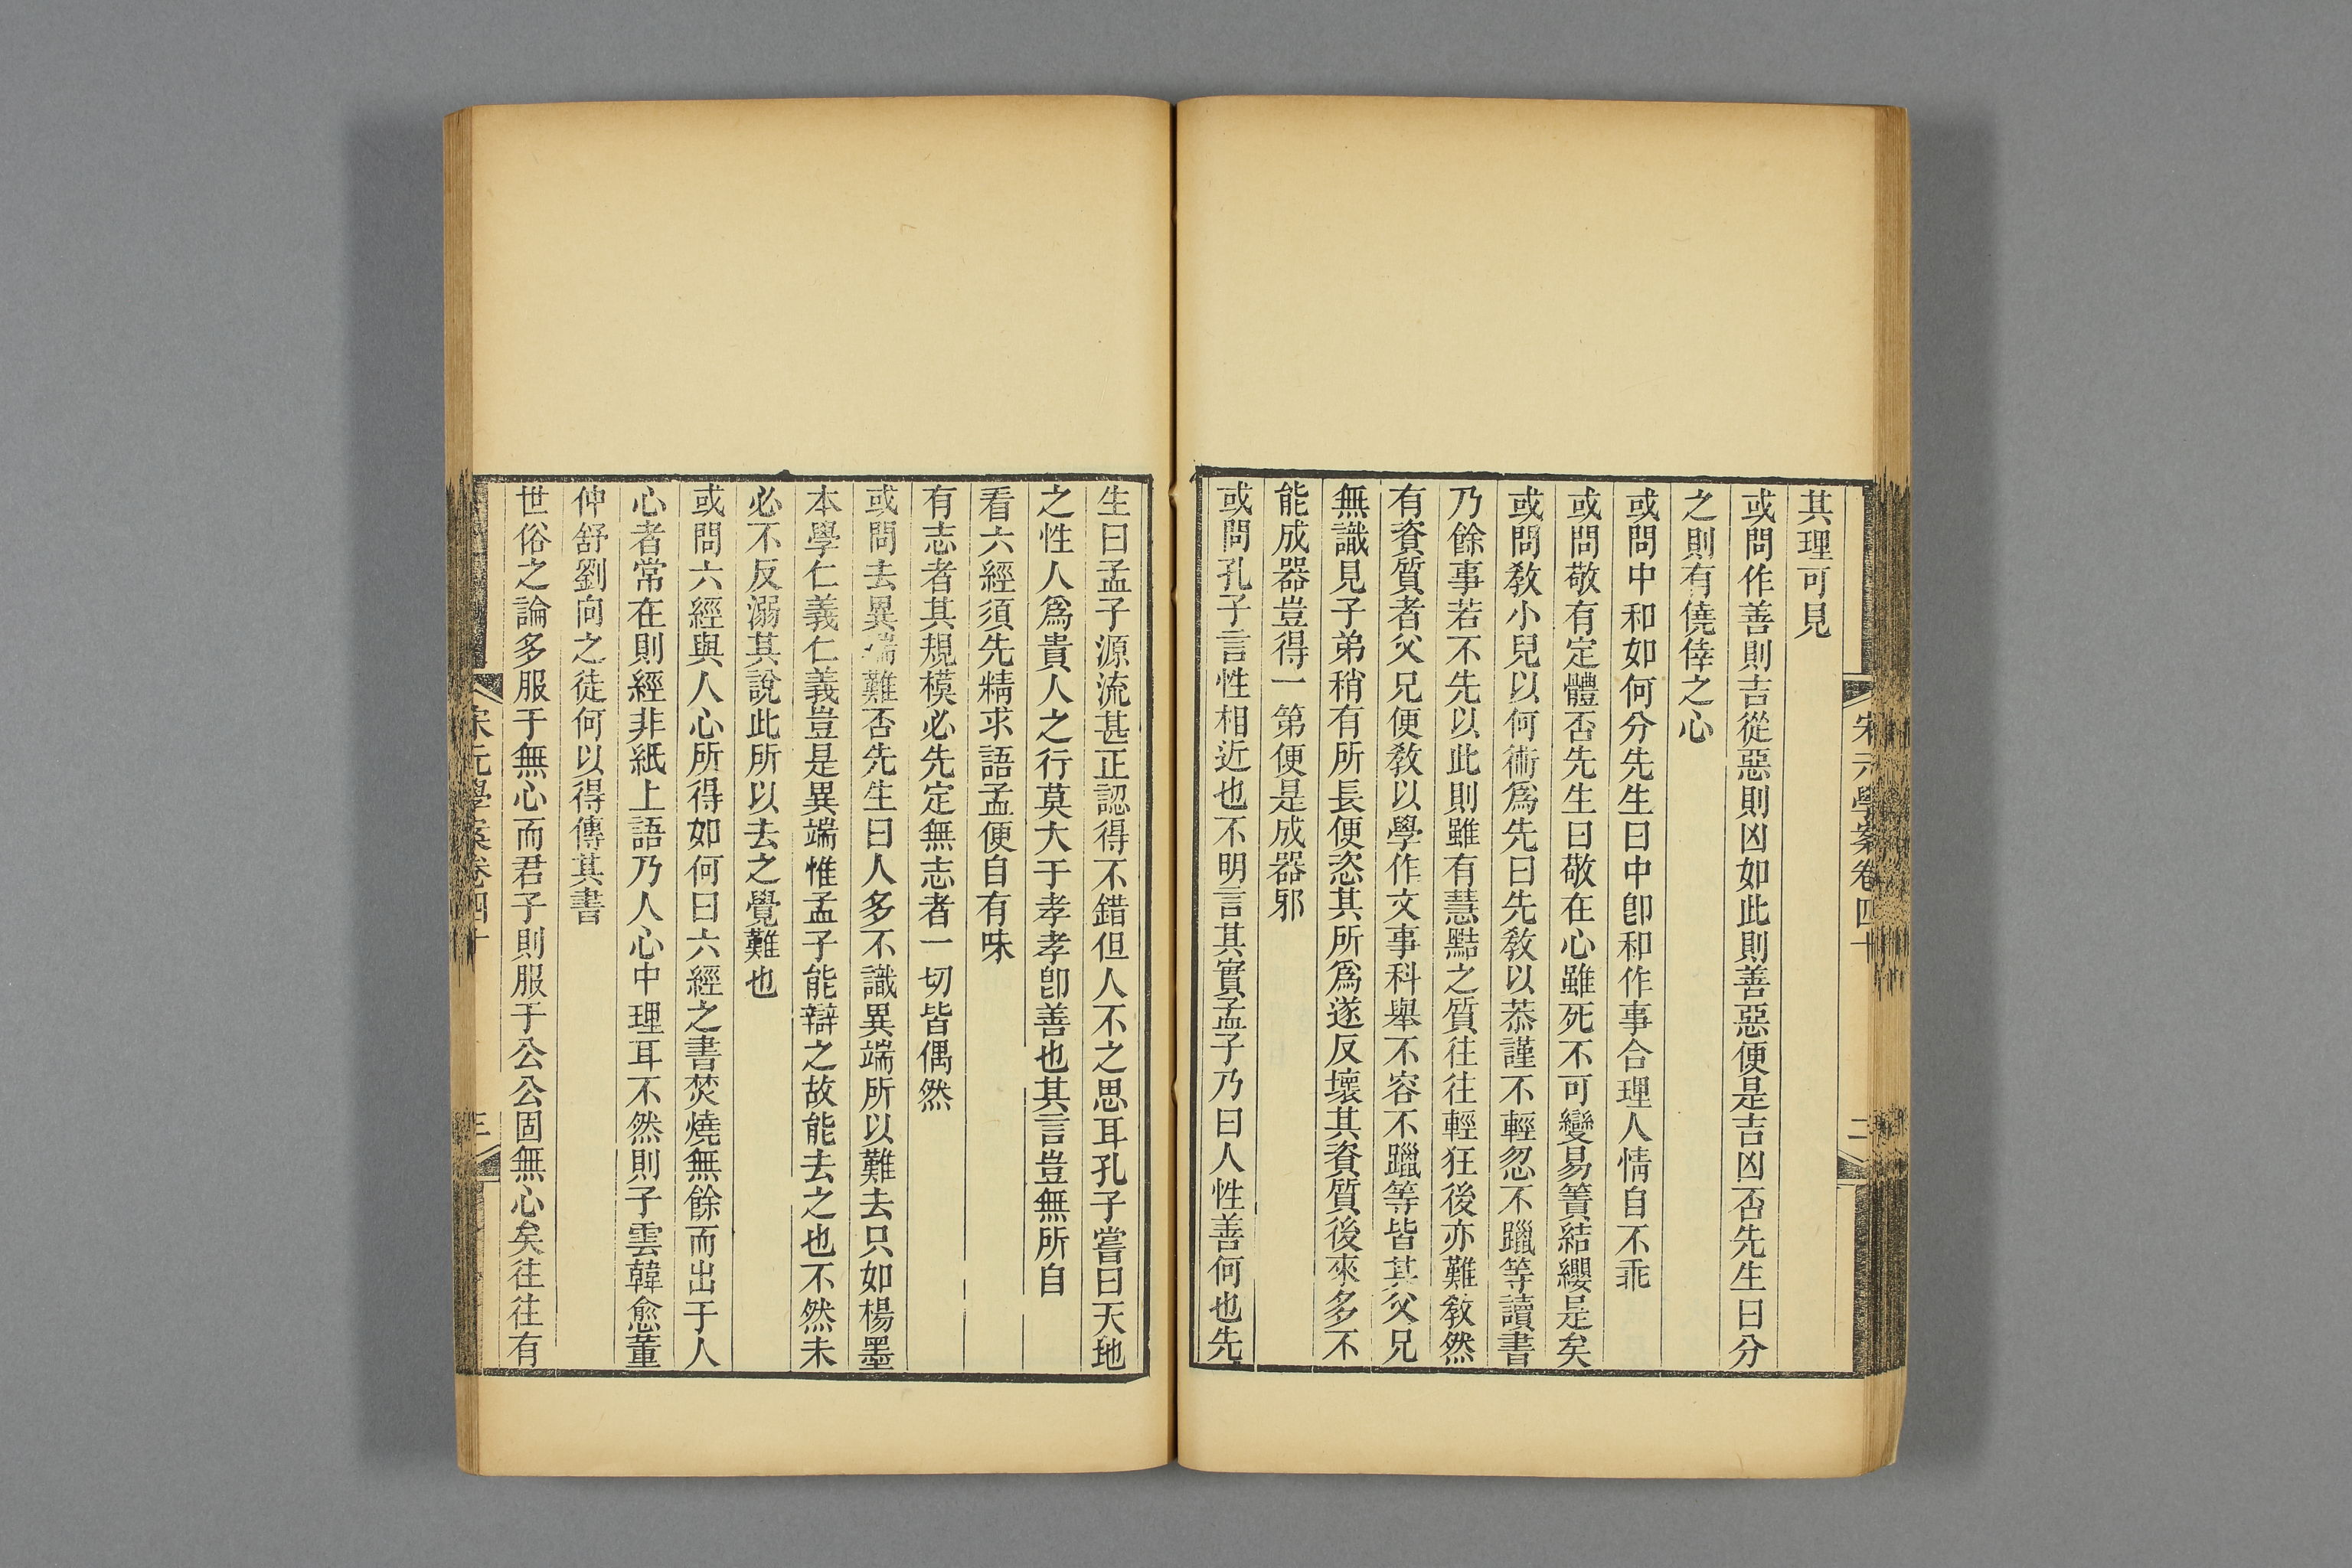 宋元學案卷四十
二
其理可見
或問作善則吉從惡則凶如此則善惡便是吉凶否先生曰分
之則有僥倖之心
或問中和如何分先生曰中卽和作事合理人情自不乖
或問敬有定體否先生曰敬在心雖死不可變易簀結纓是矣
或問敎小兒以何術爲先曰先敎以恭謹不輕忽不躐等讀書
乃餘事若不先以此則雖有慧黠之質往往輕狂後亦難敎然
有資質者父兄便敎以學作文事科舉不容不躐等皆其父兄
無識見子弟稍有所長便恣其所爲遂反壞其資質後來多不
能成器豈得一第便是成器邪
或問孔子言性相近也不明言其實孟子乃曰人性善何也先
生曰孟子源流甚正認得不錯但人不之思耳孔子嘗曰天地
之性人爲貴人之行莫大于孝孝卽善也其言豈無所自
看六經須先精求語孟便自有味
有志者其規模必先定無志者一切皆偶然
或問去異端難否先生曰人多不識異端所以難去只如楊墨
本學仁義仁義豈是異端惟孟子能辯之故能去之也不然未
必不反溺其說此所以去之覺難也
或問六經與人心所得如何曰六經之書焚燒無餘而出于人
心者常在則經非紙上語乃人心中理耳不然則子雲韓愈董
仲舒劉向之徒何以得傳其書
世俗之論多服于無心而君子則服于公公固無心矣往往有
宋元學案卷四十
三